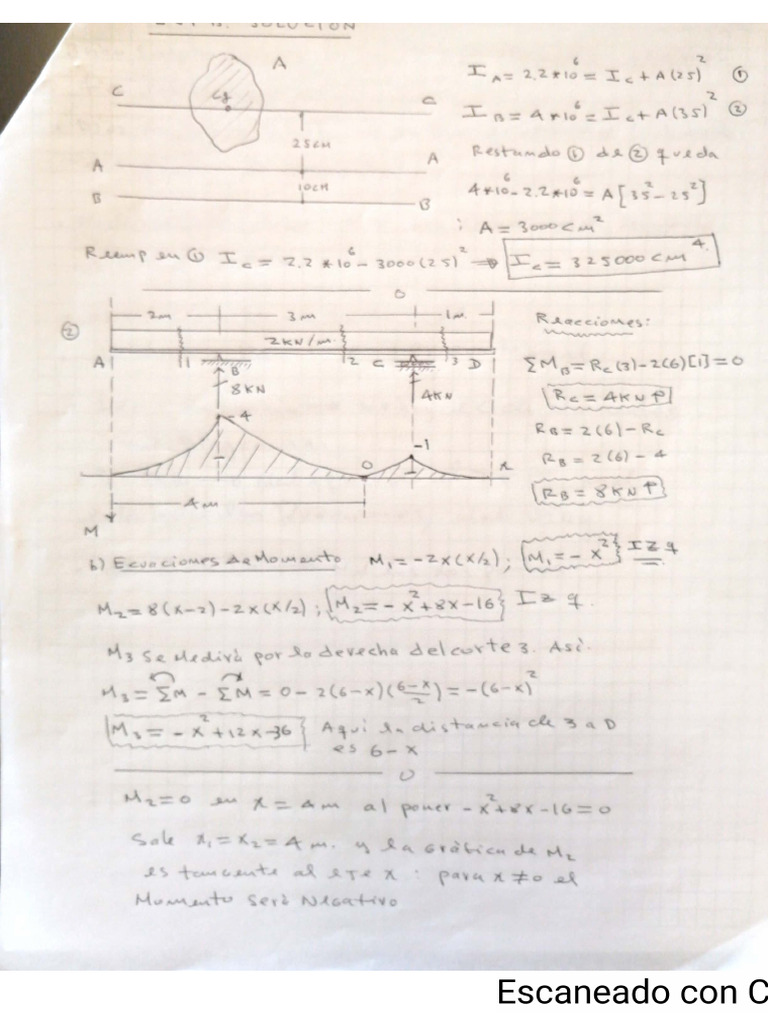 SOLUCION
A
C
Cg
C
25cm
A
A
10cm
B
B
I_A = 2.2*10^6 = I_c + A(25)^2 ①
I_B = 4*10^6 = I_c + A(35)^2 ②
Restando ① de ② queda
4*10^6 - 2.2*10^6 = A[35^2 - 25^2]
∴ A = 3000cm^2
Reemp en ① I_c = 2.2*10^6 - 3000(25)^2 ⇒ I_c = 325000cm^4.
O
②
2m 3m 1m
2KN/m.
A 1 B 2 C 3 D
8KN
4KN
-4
-1
O
x
4m
M
Reacciones:
ΣM_B = R_c(3)-2(6)[1]=0
R_c = 4KN↑
R_B = 2(6)-R_c
R_B = 2(6)-4
R_B = 8KN↑
b) Ecuaciones de Momento M_1=-2x(x/2); M_1=-x^2 } IZq
M_2=8(x-2)-2x(x/2); M_2=-x^2+8x-16 } Izq.
M_3 se medirá por la derecha del corte 3. Así.
M_3 = ΣM - ΣM = 0-2(6-x)((6-x)/2) = -(6-x)^2
M_3=-x^2+12x-36 } Aquí la distancia de 3 a D
es 6-x
O
M_2=0 en x=4m al poner -x^2+8x-16=0
Sale x_1=x_2=4m. y la gráfica de M_2
es tangente al eje x : para x≠0 el
Momento será Negativo
Escaneado con C